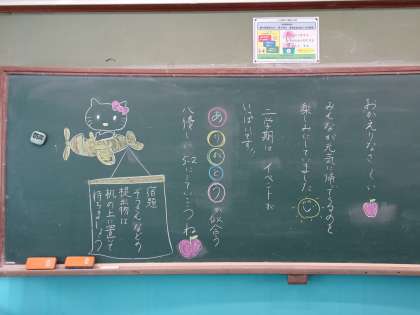 おかえりなさーい
みんなが元気に帰ってくるのを
楽しみにしていました
二学期は イベントが
いっぱいです。
ありがとうが似合う
八傑いい5-2にしていこうね
宿題
チャレンジなどの
提出物は
机の上に置いて
待ちましょう